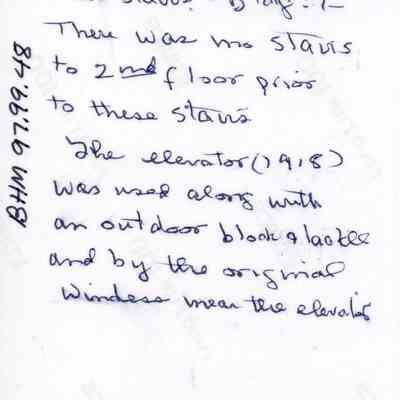 There was no stairs
to 2nd floor prior
to these stairs
The elevator (1918)
was used along with
an outdoor block & tackle
and by the original
Windess near the elevator
BHM 97.99.48